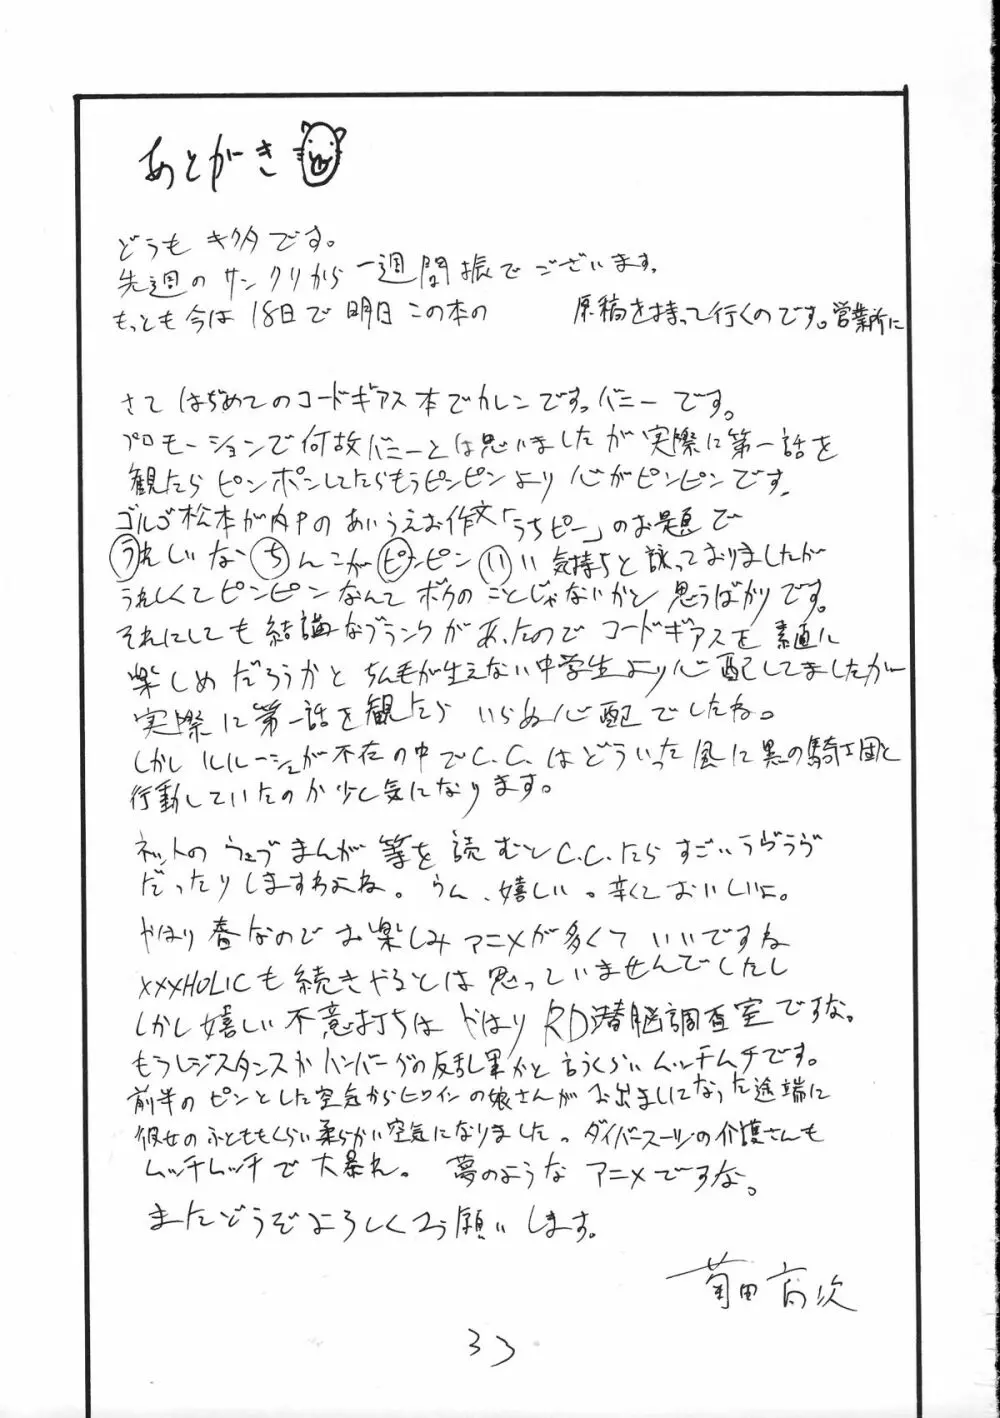 あとがき
どうもキクタです。
先週のサンクリから一週間振でございます。
もっとも今は18日で明日この本の 原稿を持って行くのです。営業所に
さてはぢめてのコードギアス本でカレンです。バニーです。
プロモーションで何故バニーとは思いましたが実際に第一話を
観たらピンポンしてたらもうピンピンより心がピンピンです。
ゴルゴ松本が内Pのあいうえお作文「うちピー」のお題で
うれしいな ちんこが ピンピン いい気持ちと詠っておりましたが
うれしくてピンピンなんてボクのことじゃないかと思うばかりです。
それにしても結講なブランクがあったのでコードギアスを素直に
楽しめだろうかと ちん毛が生えない中学生より心配してましたが
実際に第一話を観たら いらぬ心配でしたね。
しかしルルーシュが不在の中でC.C.はどういった風に黒の騎士団と
行動していたのか少し気になります。
ネットのウェブまんが等を読むとC.C.たらすごいラヴラヴ
だったりしますわよね。うん、嬉しい。辛くておいしいよ。
やはり春なのでお楽しみアニメが多くていいですね
XXXHOLICも続きやるとは思っていませんでしたし
しかし嬉しい不意打ちはやはりRD潜脳調査室ですな。
もうレジスタンスかハンバーグの反乱軍かと言うくらいムッチムチです。
前半のピンとした空気からヒロインの娘さんがお出ましになった途端に
彼女のふとももくらい柔らかい空気になりました。ダイバースーツの介護さんも
ムッチムッチで大暴れ。 夢のようなアニメですな。
またどうぞよろしくお願いします。
菊田高次
33